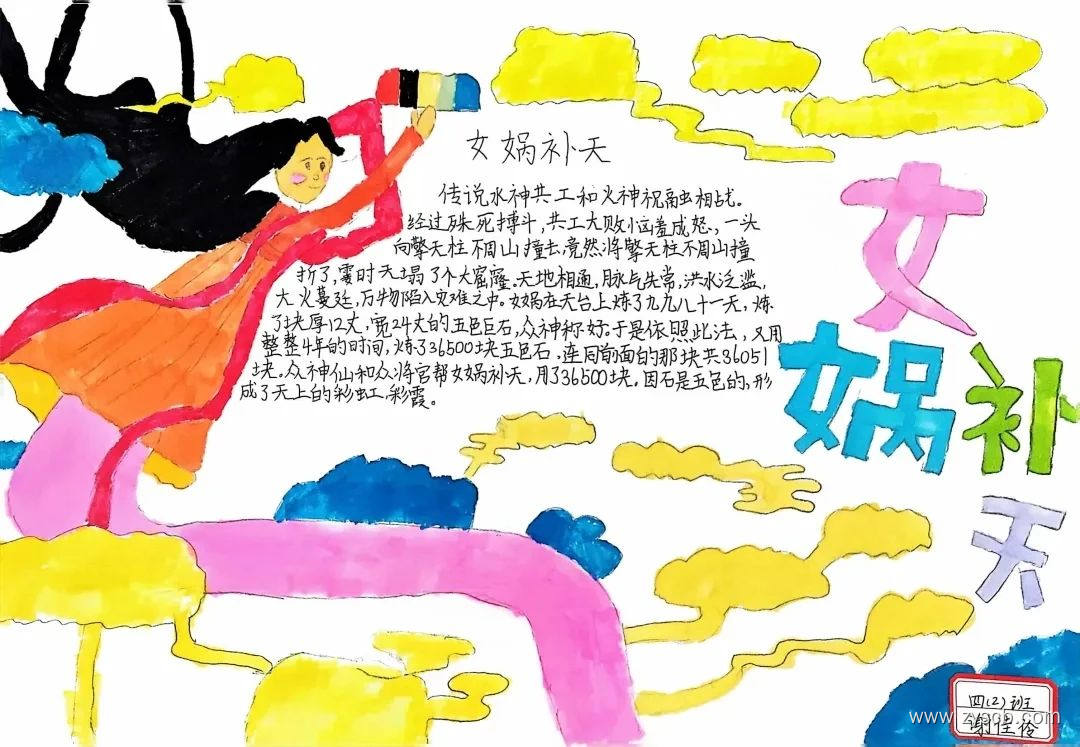 女娲补天
传说水神共工和火神祝融相战。
经过殊死搏斗，共工大败恼羞成怒，一头
向擎天柱不周山撞去，竟然将擎天柱不周山撞
折了，霎时天塌了个大窟窿。天地相通，脉气失常，洪水泛滥，
大火蔓延，万物陷入灾难之中。女娲在天台上炼了九九八十一天，炼
了块厚12丈，宽24丈的五色巨石，众神称好。于是依照此法，又用
整整4年的时间，炼了36500块五色石，连同前面的那块共36051
块。众神仙和众将官帮女娲补天，用了36500块。因石是五色的，形
成了天上的彩虹，彩霞。
女
娲补
天
四(2)班
谢佳
www.zyscb.com